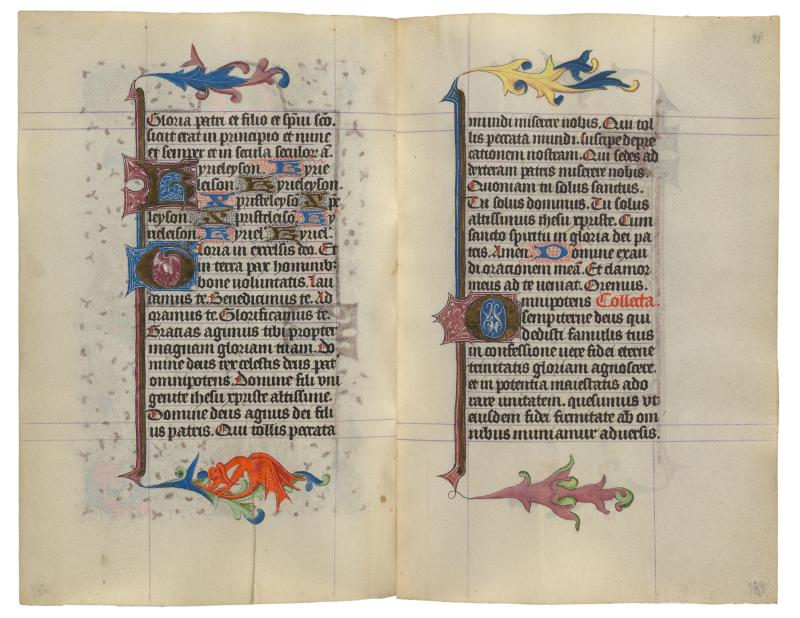 Gloria patri et filio et spiui sco.
sicut erat in principio et nunc
et semper et in secula seculor a.
Kyrieleyson. Kyrie
leison. Kyrieleyson.
Xpristeleyso Xpe
leyson. Xpristeleiso. Ky
rieleison Kyriel. Kyriel.
Gloria in excelsis deo. Et
in terra pax hominib3
bone uoluntatis. Lau
damus te. Benedicimus te. Ad
oramus te. Glorificamus te.
Gracias agimus tibi propter
magnam gloriam tuam. Do
mine deus rex celestis deus pat
omnipotens. Domine fili vni
genite ihesu xpriste altissime.
Domine deus agnus dei fili
us patris. Qui tollis peccata
98
mundi miserere nobis. Qui tol
lis peccata mundi. suscipe depre
cationem nostram. Qui sedes ad
dexteram patris miserere nobis.
Quoniam tu solus sanctus.
Tu solus dominus. Tu solus
altissimus ihesu xpriste. Cum
sancto spiritu in gloria dei pa
tris. Amen. Domine exau
di oracionem mea. Et clamor
meus ad te ueniat. Oremus.
Omnipotens Collecta.
sempiterne deus qui
dedisti famulis tuis
in confessione uere fidei eterne
trinitatis gloriam agnoscere.
et in potentia maiestatis ado
rare unitatem. quesumus vt
eiusdem fidei firmitate ab om
nibus muniamur aduersis.